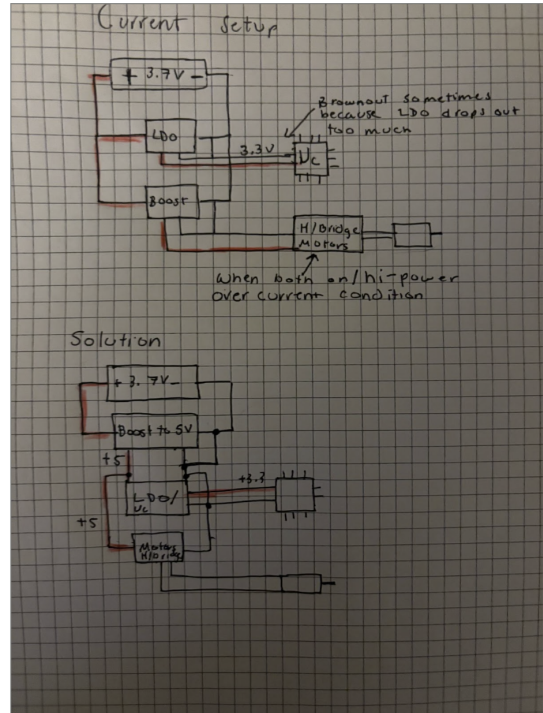 Current Setup
+ 3.7V -
Brownout sometimes
because LDO drops out
too much
LDO
3.3V
Uc
Boost
H/Bridge
Motors
when both on/hi-power
over current condition
Solution
+ 3.7V -
Boost to 5V
+5
+3.3
LDO/
Uc
+5
Motors
H/Bridge